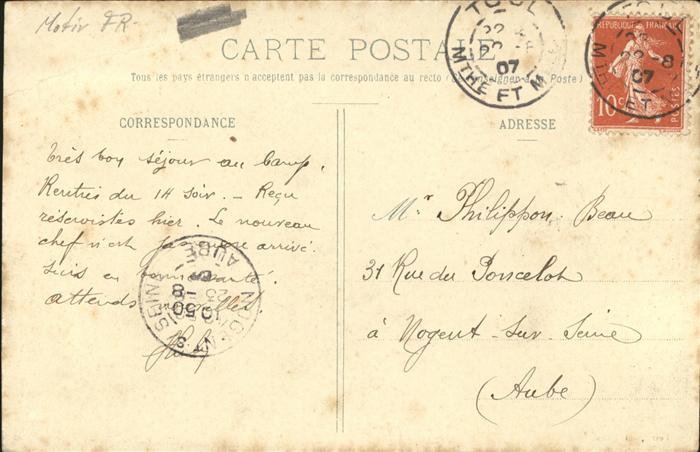 Motiv FR
CARTE POSTALE
Tous les pays étrangers n'acceptent pas la correspondance au recto (Se renseigner à la Poste)
CORRESPONDANCE
Très bon séjour au Camp.
Rentrés du 14 soir. _ Reçu
réservistes hier. Le nouveau
chef n'est pas encore arrivé.
Suis en bonne santé.
attends nouvelles.
ADRESSE
Mr Philippon-Beau
31 Rue du Porcelot
à Nogent-sur-Seine
(Aube)
TOUL
07
MTHE ET M
REPUBLIQUE FRANÇAISE
10c
POSTES
TOUL
8
07
MTHE ET
NOGENT S SEINE
10 50
23 - 8
AUBE